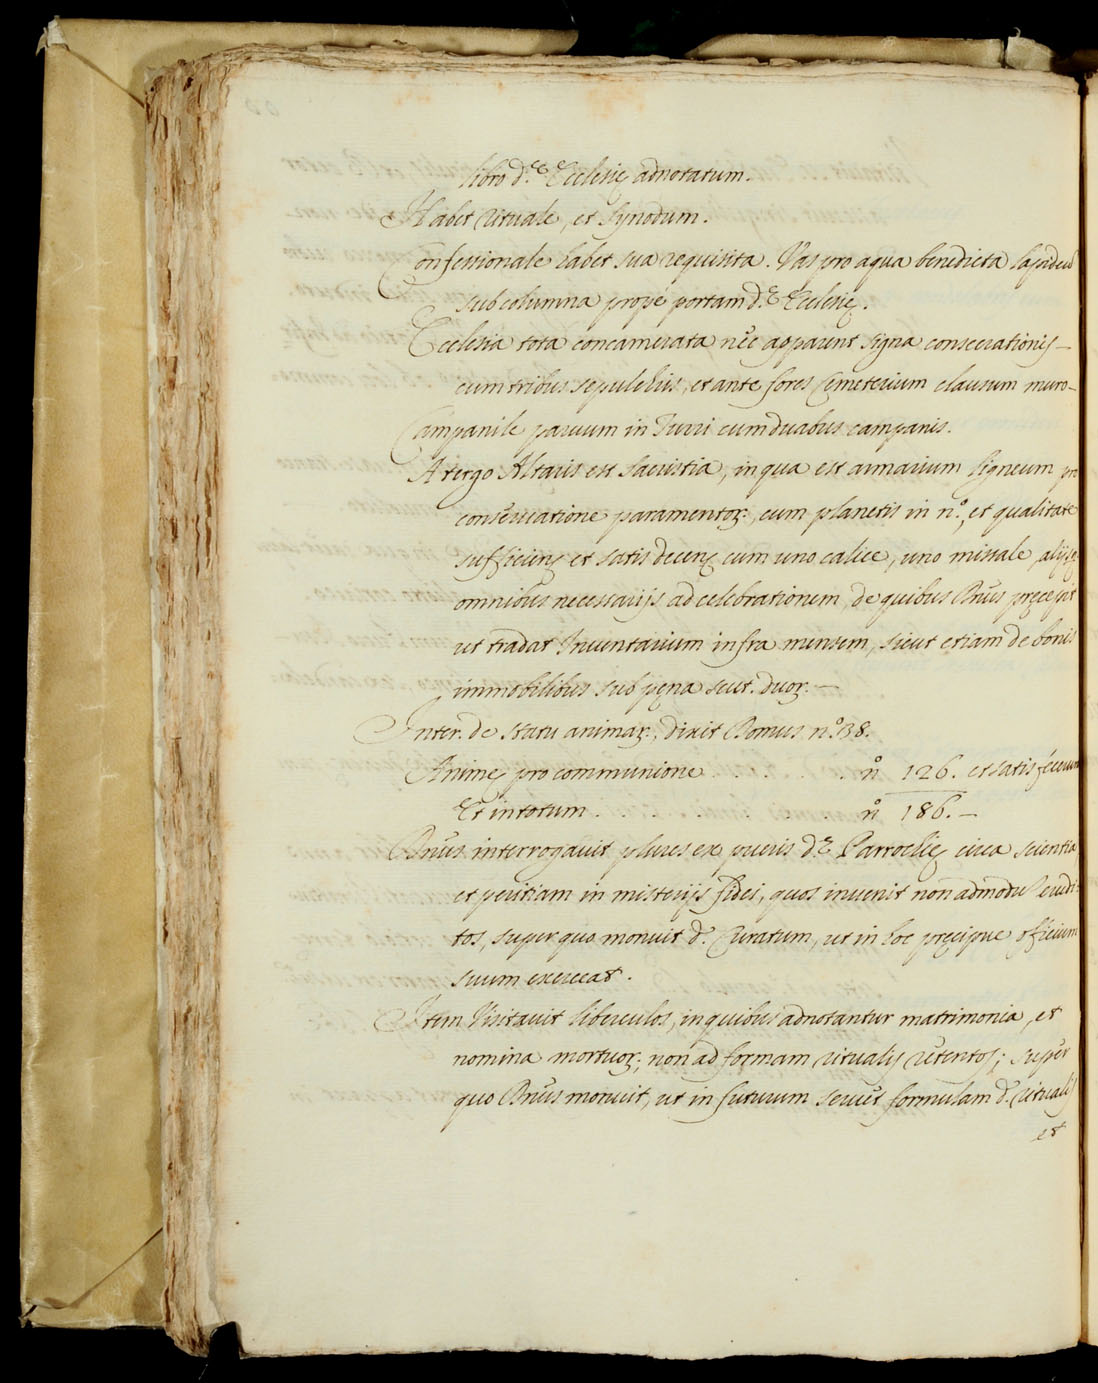 libro d.ę Ecclesię adnotatum.
Habet rituale, et synodum.
Confessionale habet sua requisita. Vas pro aqua benedicta lapideū
sub columna propè portam d.ę Ecclesię.
Ecclesia tota concamerata nec apparent signa consecrationis –
cum tribus sepulchris, et ante fores Cęmeterium clausum muro –
Campanile paruum in Turri cum duabus campanis.
A tergo Altaris est sacristia, in qua est armarium ligneum pro
conseruatione paramentoꝝ., cum planetis in n.º, et qualitate
sufficienę et satis decenę cum uno calice, uno missale, alijsqꝫ
omnibus necessarijs ad celebrationem, de quibus Dn̄us pręcepit
ut tradat Inuentarium infra mensem, sicut etiam de bonis
immobilibus sub pęna scut. duoꝝ. –
Inter. de statu animaꝝ., dixit Domus n.º 38.
Animę pro communione . . . . . . n.º 126. et satisfécerunt
Et in totum . . . . . . . n.º 186. –
Dn̄us interrogauit plures ex pueris d.ę Parrochię circa scientiā
et peritiam in misterijs fidei, quos inuenit non admodū erudi-
tos, super quo monuit d.º Curatum, ut in hoc pręcipue officium
suum exerceat.
Item Visitauit liberculos, in quibus adnotantur matrimonia, et
nomina mortuoꝝ.; non ad formam ritualis retentos; super
quo Dn̄us monuit, ut in futurum seruet formulam d.ⁱ ritualis
et